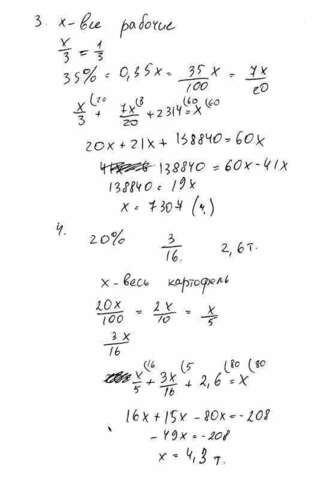 3. x - все рабочие
x/3 = 1/3
35% = 0,35x = 35x/100 = 7x/20
x/3 (20 + 7x/20 (3 + 2314 (60 = x (60
20x + 21x + 138840 = 60x
138840 = 60x - 41x
138840 = 19x
x = 7307 (ч.)
4.
20% 3/16 2,6 т.
x - весь картофель
20x/100 = 2x/10 = x/5
3x/16
x/5 (16 + 3x/16 (5 + 2,6 (80 = x (80
16x + 15x - 80x = -208
-49x = -208
x = 4,3 т.